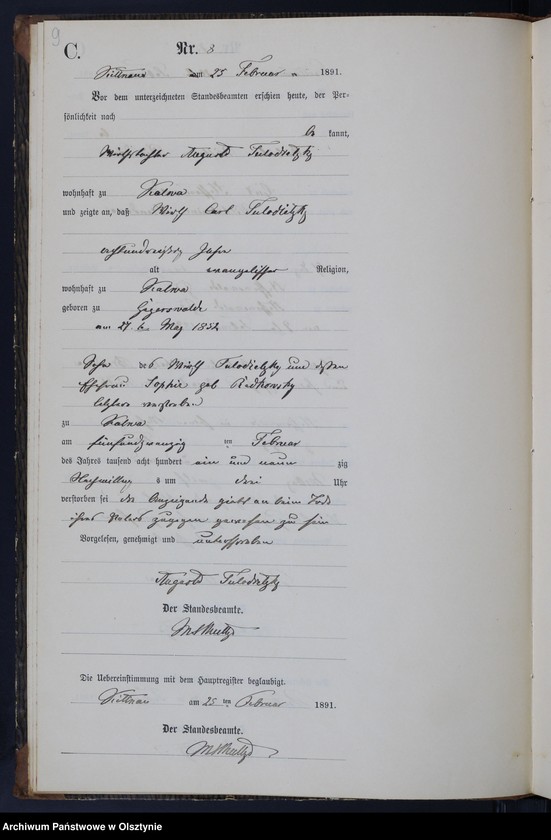 9
C.
Nr. 3
am 25 Februar 1891.
Vor dem unterzeichneten Standesbeamten erschien heute, der Per-
sönlichkeit nach
be kannt,
August Tulodietzky
wohnhaft zu Kalwa
und zeigte an, daß Wirth Carl Tulodietzky
achtunddreißig Jahre
alt evangelischer Religion,
wohnhaft zu Kalwa
geboren zu
am 27 1852
Sohn des Wirth Tulodietzky und dessen
Ehefrau Sophie geb
letztere verstorben
zu Kalwa
am fünfundzwanzig ten Februar
des Jahres tausend acht hundert ein und neun zig
Nachmittag s um drei Uhr
verstorben sei
zugegen gewesen zu sein
Vorgelesen, genehmigt und unterschrieben
August Tulodietzky
Der Standesbeamte.
Die Uebereinstimmung mit dem Hauptregister beglaubigt.
am 25 ten Februar 1891.
Der Standesbeamte.
Archiwum Państwowe w Olsztynie